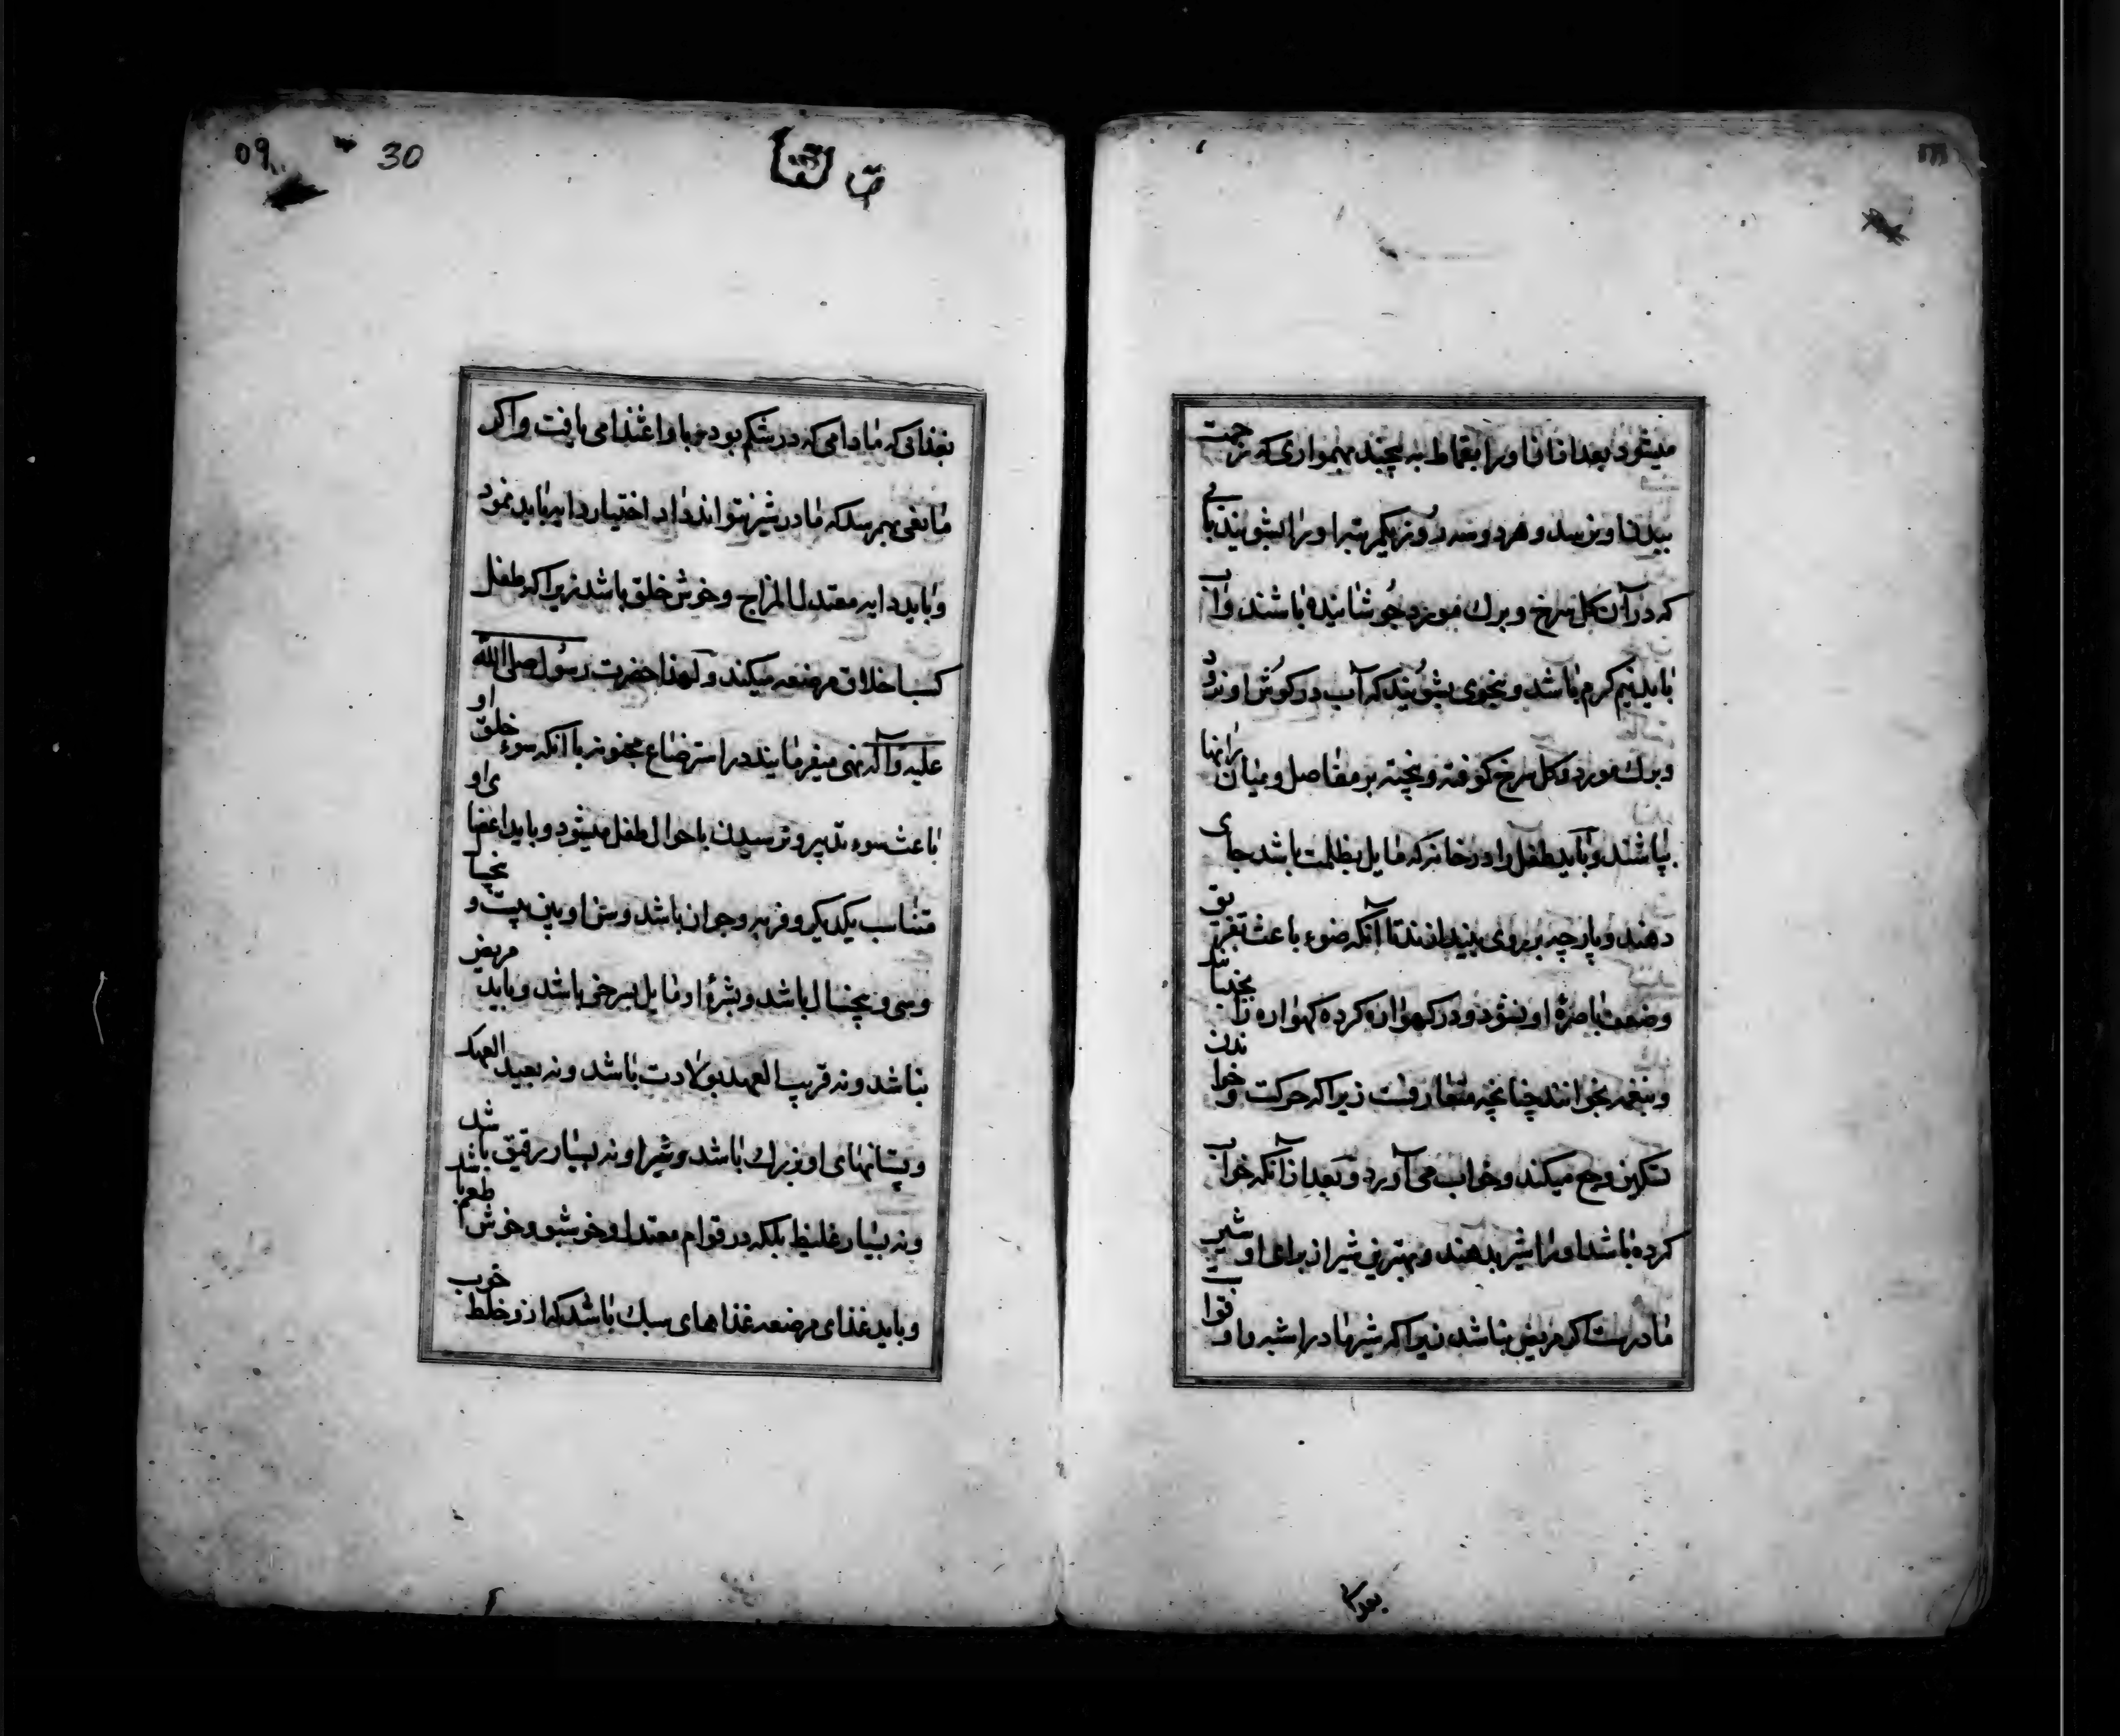 میشود بعد ازان او را بقماط به پیچند بهمواری که زحمت
ببدن او نرسد و هر دو سه روز یکمرتبه او را بشویند بآبی
که در آن کل سرخ و برك مورد جوشانیده باشند و آب
باید نیم کرم باشد و بنحوی بشویند که آب در کوش او نرود
و برك مورد و کل سرخ کوفته و پخته بر مفاصل و میان رانها
بپاشند و باید طفل را در خانه که مایل بظلمت باشد جای
دهند و پارچه بر روی بیندازند تا آنکه ضوء باعث تفریق
و ضعف باصرهٔ او نشود و در کهواره کرده کهواره را بجنبانند
و نغمه بخوانند چنانچه متعارفست زیرا که حرکت و خواندن
تسکین وجع میکند و خواب می آورد و بعد از آنکه خواب
کرده باشد او را شیر بدهند و بهترین شیر از برای او شیر
مادرست اکر مریض نباشد زیرا که شیر مادر اشبه و اوفق
30
بغذائی که مادامی که در شکم بود باو اغتذا می یافت و اکر
مانعی بهم رسد که مادر شیر نتواند داد اختیار دایه باید نمود
و باید دایه معتدل المزاج و خوش خلق باشد زیرا که طفل
کسب اخلاق مرضعه میکند و لهذا حضرت رسول صلی الله
علیه و آله نهی میفرمایند در استرضاع مجنونه با آنکه سوء خلق او
باعث سوء تدبیر و نرسیدن باحوال طفل میشود و باید اعضای او
متناسب یکدیکر و فربه و جوان باشد و سن او بین بیست و پنج
و سی و پنجسال باشد و بشرهٔ او مایل بسرخی باشد و باید مریض
نباشد و نه قریب العهد بولادت باشد و نه بعید العهد
و پستانهای او بزرك باشد و شیر او نه بسیار رقیق باشد
و نه بسیار غلیظ بلکه در قوام معتدل و خوشبو و خوش طعم باشد
و باید غذای مرضعه غذاهای سبك باشد که از او خلط خوب